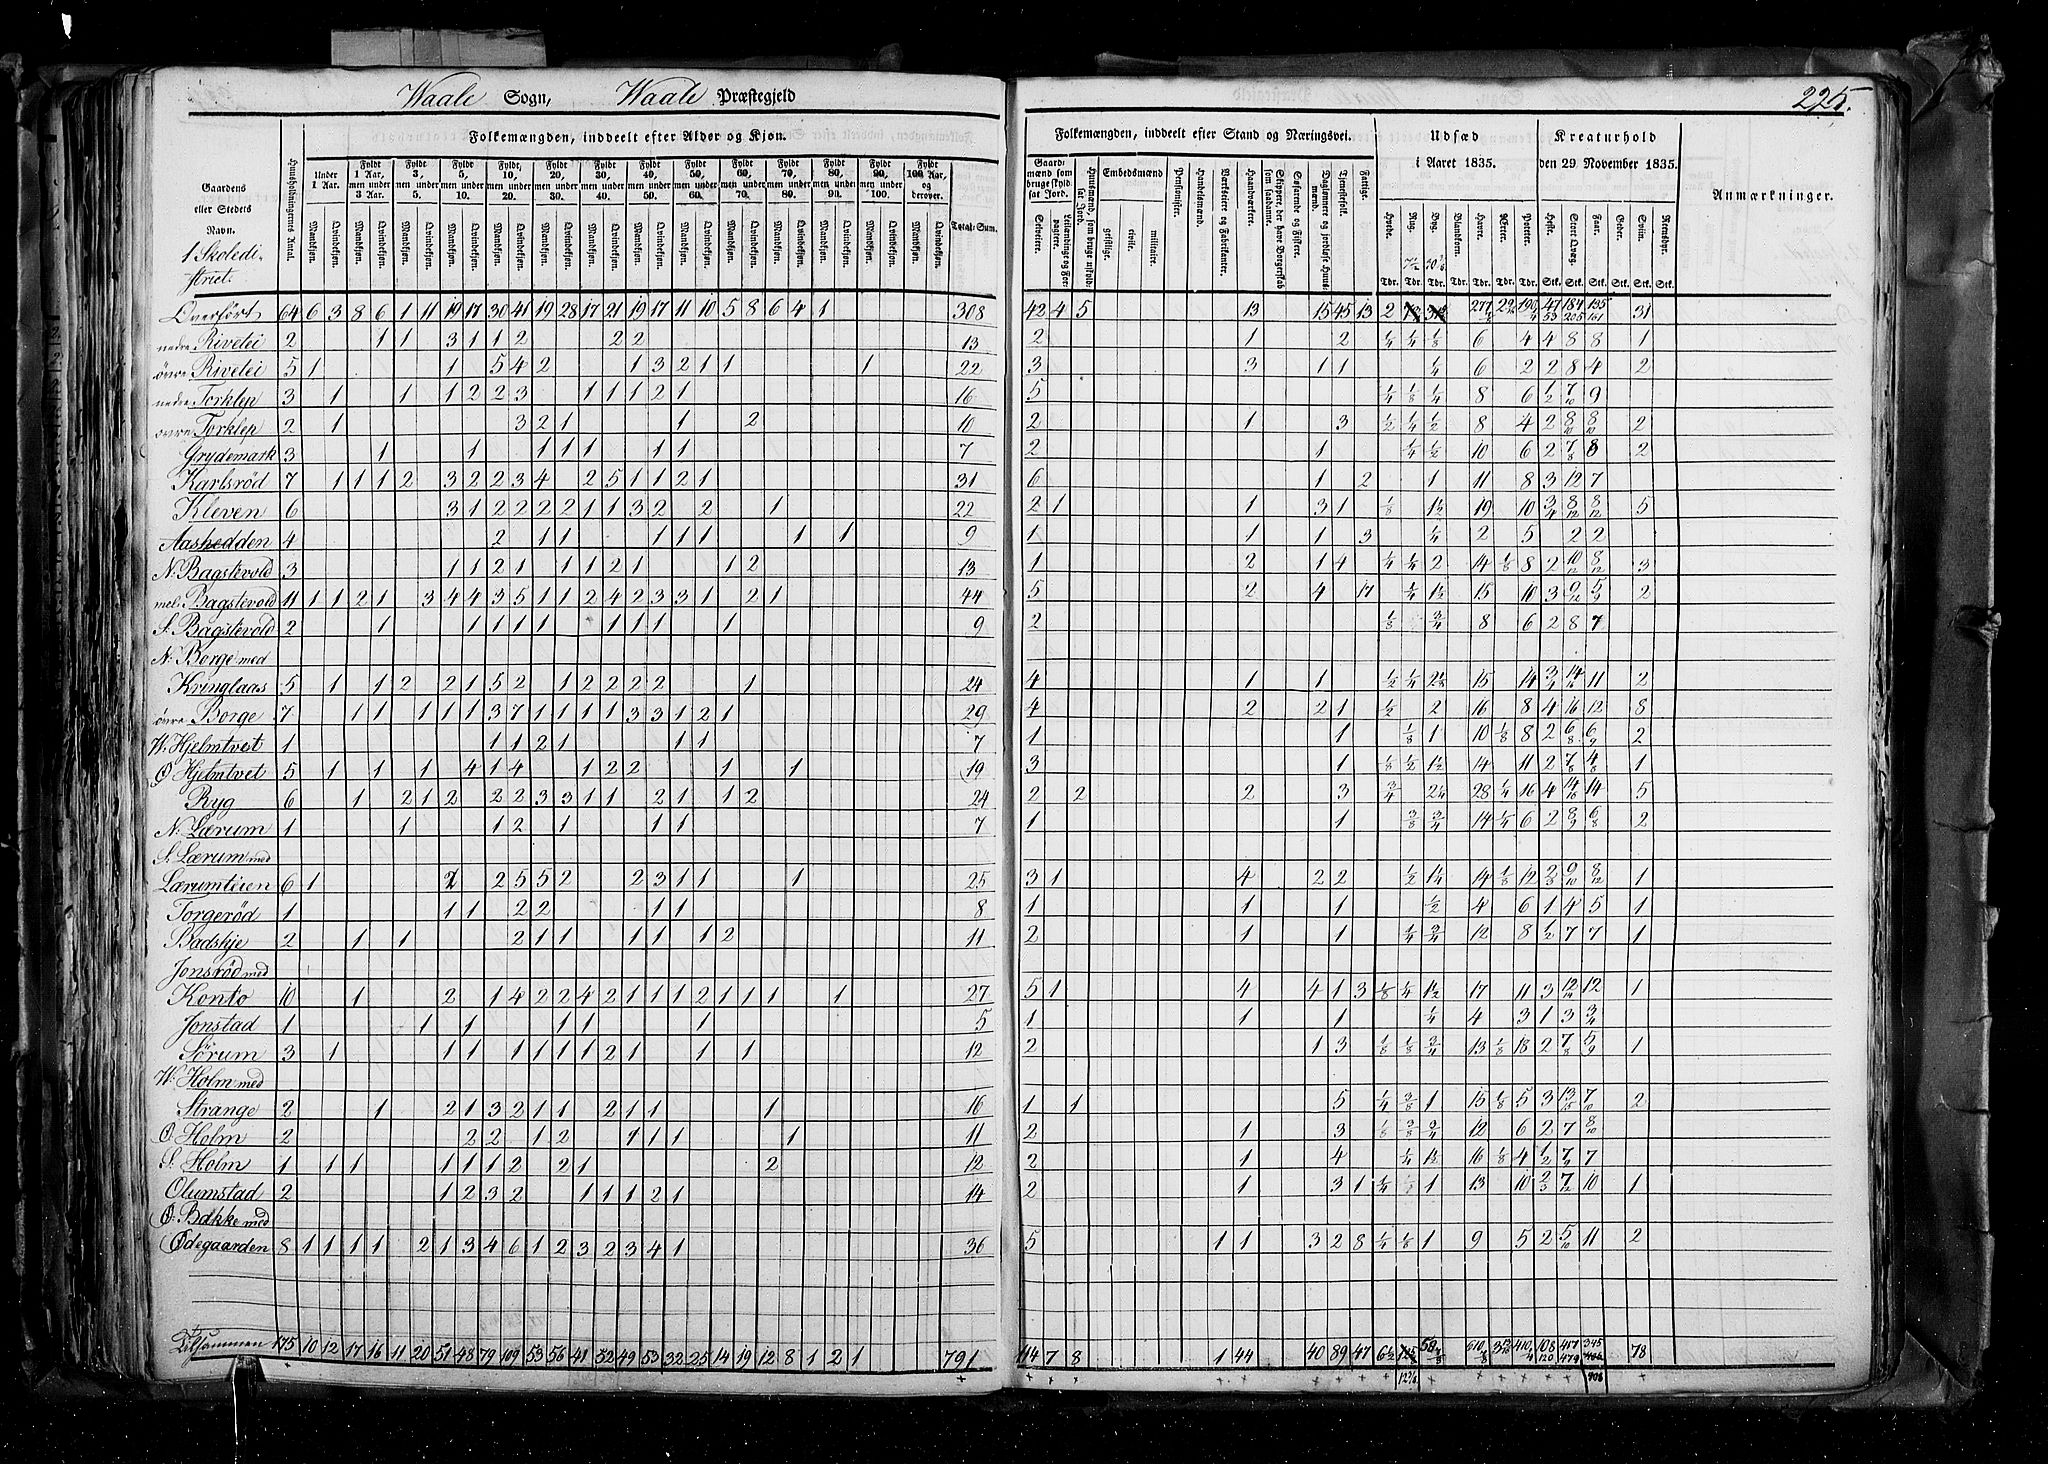 Waale Sogn, Waale Præstegjeld
225.
Folkemængden, inddeelt efter Alder og Kjøn.
Folkemængden, inddeelt efter Stand og Næringsvei.
Udsæd
i Aaret 1835.
Kreaturhold
den 29 November 1835.
Anmærkninger.
Gaardens
eller Stedets
Navn.
1 Skoledi-
strict.
Huusholdningernes Antal.
Under 1 Aar.
Fyldt 1 Aar, men under 3 Aar.
Fyldt 3, men under 5.
Fyldt 5, men under 10.
Fyldt 10, men under 20.
Fyldt 20, men under 30.
Fyldt 30, men under 40.
Fyldt 40, men under 50.
Fyldt 50, men under 60.
Fyldt 60, men under 70.
Fyldt 70, men under 80.
Fyldt 80, men under 90.
Fyldt 90, men under 100.
Fyldt 100 Aar, og derover.
Mandkjøn. Qvindekjøn.
Total-Sum.
Gaardmænd som bruge skyldsat Jord.
Selveiere.
Leilændinge og Forpagtere.
Huusmænd, som bruge uskyldsat Jord.
Embedsmænd
geistlige.
civile.
militaire.
Pensionister.
Handelsmænd.
Værkseiere og Fabrikanter.
Haandværkere.
Skippere, der have Borgerskab som saadanne.
Søfarende og Fiskere.
Daglønnere og jordløse Huusmænd.
Tjenestefolk.
Fattige.
Hvede. Rug. Byg. Blandkorn. Havre. Erter. Poteter.
Heste. Stort Qvæg. Faar. Geder. Sviin. Rensdyr.
Tdr. Tdr. Tdr. Tdr. Tdr. Tdr. Tdr. Stk. Stk. Stk. Stk. Stk. Stk.
Overført 64 6 3 8 6 1 11 19 17 30 41 19 28 17 21 19 17 11 10 5 8 6 4 1 308 42 4 5 13 15 45 13 2
nedre Rivelei 2 1 1 3 1 1 2 2 2 13 2 1 2 1/4 1/4 1/8 6 4 4 8 8 1
øvre Rivelei 5 1 1 5 4 2 1 3 2 1 1 1 22 3 3 1 1 1/4 6 2 2 8 4 2
nedre Torklep 3 1 1 1 2 2 3 1 1 1 2 1 16 5 1/4 1/8 1/4 8 6
øvre Torklep 2 1 3 2 1 1 2 10 2 1 3 1/2 1/4 1/2 8 4 2 2
Grydemark 3 1 1 1 1 1 1 1 7 2 1 1/4 1/2 10 6 2 2
Karlsrød 7 1 1 1 2 3 2 2 3 4 2 5 1 1 2 1 31 6 1 2 1 11 8 3 12 7
Kleven 6 3 1 2 2 2 2 1 1 3 2 2 1 22 2 1 1 3 1 1/8 19 10 5
Aashedden 4 2 1 1 1 1 1 1 1 9 1 1 1 3 1/4 2 5 2 2
N. Bagstevold 3 1 1 2 1 1 1 2 1 1 2 13 1 2 1 4 2 14 1/8 8 2 3
mel. Bagstevold 11 1 1 2 1 3 4 4 3 5 1 1 2 4 2 3 3 1 2 1 44 5 2 4 17 1/4 15 10 3 2
S. Bagstevold 2 1 1 1 1 1 1 1 1 1 9 2 1/8 3/4 8 6 2 8 7
N. Borge med
Kringlaas 5 1 1 2 2 1 5 2 1 2 2 2 2 1 24 4 1 1 1/2 1/4 15 14 11 2
øvre Borge 7 1 1 1 1 1 3 7 1 1 1 1 3 3 1 2 1 29 4 2 2 1 1/2 2 16 8 4 16 12 8
W. Hjelmtvet 1 1 1 2 1 1 1 7 1 1 1/8 1 10 1/8 8 2 2
Ø Hjelmtvet 5 1 1 1 4 1 4 1 2 2 1 1 19 3 1 1/8 1/2 14 11 2 1
Ryg 6 1 2 1 2 2 2 3 3 1 1 2 1 1 2 24 2 2 2 3 3/4 28 1/4 16 4 14 5
N. Lærum 1 1 1 2 1 1 1 7 1 1 3/8 3/4 14 1/4 6 2 2
S. Lærum med
Lærumteien 6 1 2 5 5 2 2 3 1 1 1 25 3 1 4 2 2 1/2 14 1/8 12 1
Torgerød 1 1 1 2 2 1 1 8 1 1 1 1/2 4 6 1 4 5 1
Badskje 2 1 1 2 1 1 1 1 1 2 11 2 1 1 1/4 3/4 12 8 1/2 7 7 1
Jonsrød med
Konto 10 1 2 1 4 2 2 4 2 1 1 1 2 1 1 1 1 27 5 1 4 4 1 3 1/8 1/4 1½ 17 11 3 12 1
Jonstad 1 1 1 1 1 1 5 1 1 1 1/4 4 3 1 3
Sørum 3 1 1 1 1 1 1 1 2 1 1 1 12 2 1 3 1/8 1/8 3/4 13 1/8 18 2 1
W. Holm med
Strange 2 1 2 1 3 2 1 1 2 1 1 1 16 1 1 5 1/4 3/8 1 15 1/8 5 3 2
Ø. Holm 2 2 2 1 2 1 1 1 1 11 2 1 3 1/8 3/8 3/4 12 6 2 7
S. Holm 1 1 1 1 1 1 2 2 1 2 12 2 1 4 1/4 1½ 16 1/8 4 7
Olumstad 2 1 2 3 2 1 1 1 2 1 14 2 1 3 1 1/4 1 13 10 10 1
Ø. Bakke med
Ødegaarden 8 1 1 1 1 2 1 3 4 6 1 2 3 2 3 4 1 36 5 1 1 3 2 8 1/4 1/8 1 9 5 2 11 2
Tilsammen 175 10 12 17 16 11 20 51 48 79 109 53 56 41 52 49 53 32 25 14 19 12 8 1 2 1 791 114 7 8 1 44 40 89 47 6½ 78